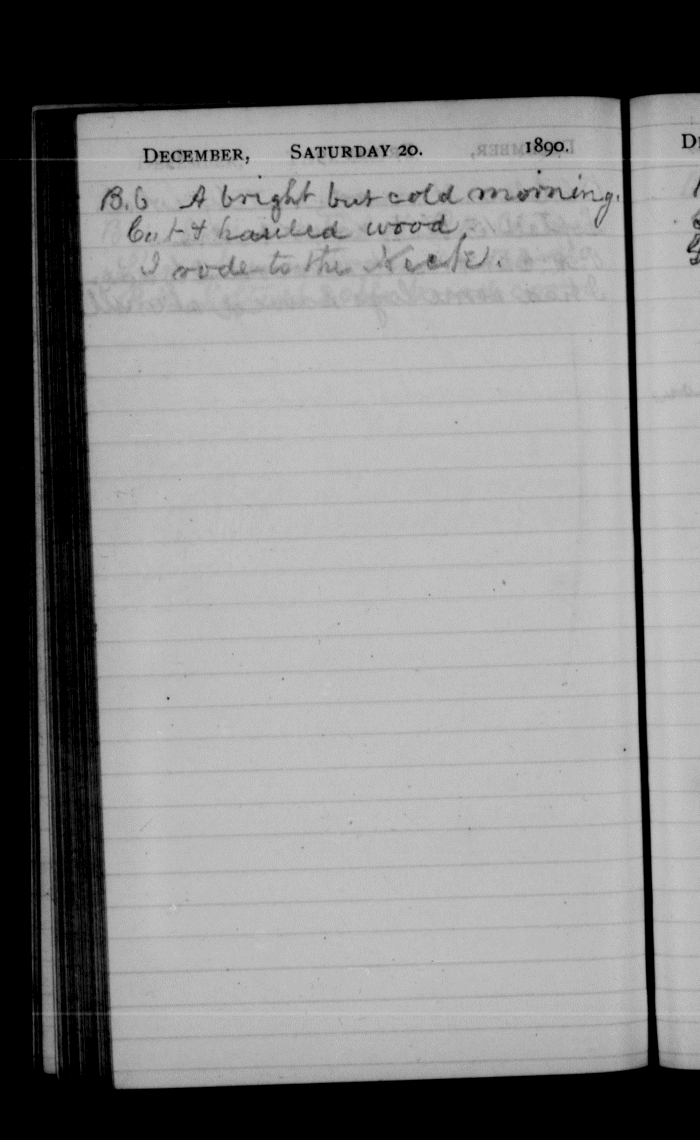 DECEMBER, SATURDAY 20. 1890.
B.C A bright but cold morning.
Cut & hauled wood,
I rode to the Neck.